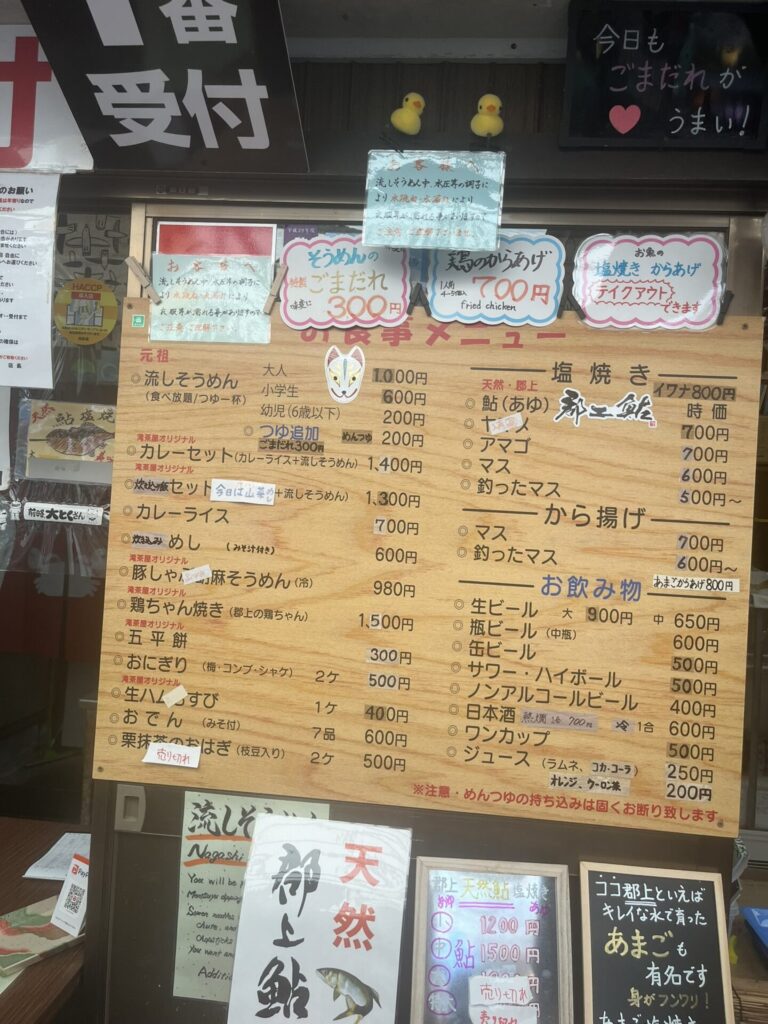 番
受付
今日も
ごまだれが
うまい!
お客様へ
流しそうめん中、水圧等の調子に
より
ご注意ご了承下さいませ
のお願い
お客様へ
流しそうめん中、
水圧等の調子に
そうめんの
ごまだれ
300円
鶏のからあげ
1人前
4~5個入
700円
fried chicken
お魚の
塩焼き からあげ
テイクアウト
できます
HACCP
天然
鮎塩焼
お食事メニュー
元祖
◎流しそうめん
(食べ放題/つゆ一杯)
大人 1000円
小学生 600円
幼児(6歳以下) 200円
◎つゆ追加 めんつゆ 200円
ごまだれ300円
滝茶屋オリジナル
◎カレーセット(カレーライス+流しそうめん) 1,400円
滝茶屋オリジナル
◎炊込み飯セット 今日は山菜めし+流しそうめん) 1,300円
◎カレーライス 700円
◎炊き込みめし (みそ汁付き) 600円
滝茶屋オリジナル
◎豚しゃぶ胡麻そうめん(冷) 980円
滝茶屋オリジナル
◎鶏ちゃん焼き(郡上の鶏ちゃん) 1,500円
滝茶屋オリジナル
◎五平餅 300円
◎おにぎり(梅・コンブ・シャケ) 2ケ 500円
滝茶屋オリジナル
◎生ハムむすび 1ケ 400円
◎おでん (みそ付) 7品 600円
◎栗抹茶のおはぎ(枝豆入り) 2ケ 500円
売り切れ
塩焼き
イワナ800円
天然・郡上
◎鮎(あゆ) 郡上鮎 時価
◎ヤマメ 700円
◎アマゴ 700円
◎マス 600円
◎釣ったマス 500円~
から揚げ
◎マス 700円
◎釣ったマス 600円~
あまごからあげ800円
お飲み物
◎生ビール 大 900円 中 650円
◎瓶ビール(中瓶) 600円
◎缶ビール 500円
◎サワー・ハイボール 500円
◎ノンアルコールビール 400円
◎日本酒 熱燗 700円 冷 1合 600円
◎ワンカップ 500円
◎ジュース (ラムネ、コカ・コーラ) 250円
オレンジ、ウーロン茶 200円
※注意・めんつゆの持ち込みは固くお断り致します
流しそうめん
Nagashi
You will be
天然
郡上鮎
郡上 天然鮎 塩焼き
1200円
鮎 1500円
売り切れ
ココ郡上といえば
キレイな水で育った
あまごも
有名です
身がフンワリ!
あまご塩焼き